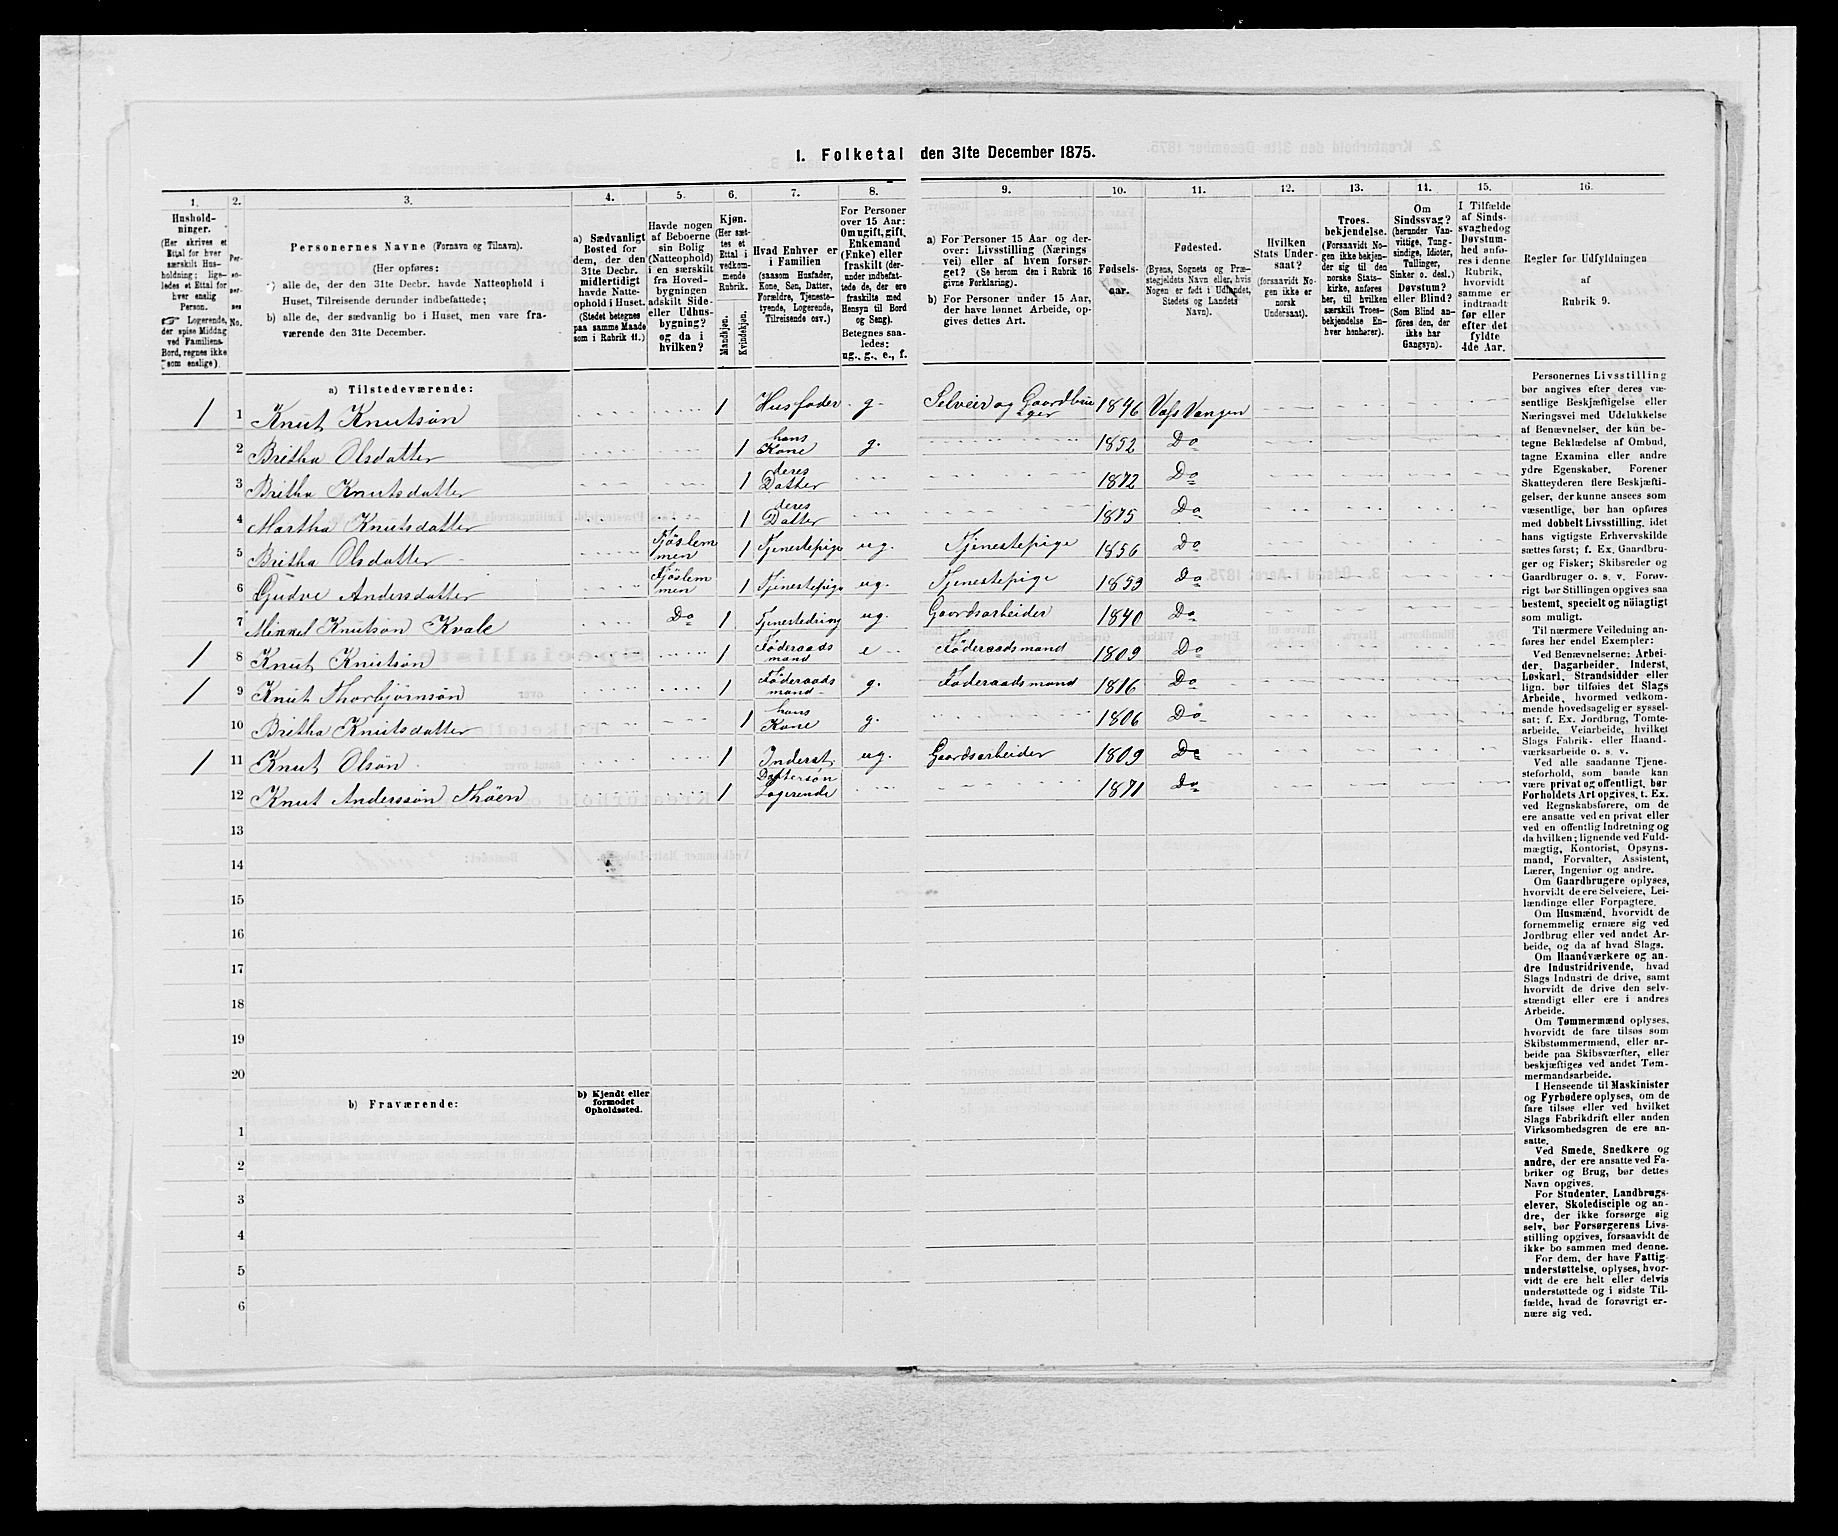 I. Folketal den 31te December 1875.
1. 2. 3. 4. 5. 6. 7. 8. 9. 10. 11. 12. 13. 14. 15. 16.
Hushold-
ninger.
(Her skrives et
Ettal for hver
særskilt Hus-
holdning; lige-
ledes et Ettal for
hver enslig
Person.
☞ Logerende,
der spise Middag
ved Familiens
Bord, regnes ikke
som enslige).
Per-
so-
ner-
nes
No.
Personernes Navne (Fornavn og Tilnavn).
(Her opføres:
a) alle de, der den 31te Decbr. havde Natteophold i
Huset, Tilreisende derunder indbefattede;
b) alle de, der sædvanlig bo i Huset, men vare fra-
værende den 31te December.
a) Sædvanligt
Bosted for
dem, der den
31te Decbr.
midlertidigt
havde Natte-
ophold i Huset.
(Stedet betegnes
paa samme Maade
som i Rubrik 11.)
Havde nogen
af Beboerne
sin Bolig
(Natteophold)
i en særskilt
fra Hoved-
bygningen
adskilt Side-
eller Udhus-
bygning?
og da i
hvilken?
Kjøn.
(Her sæt-
tes et
Ettal i
vedkom-
mende
Rubrik.
Mandkjøn.
Kvindekjøn.
Hvad Enhver er
i Familien
(saasom Husfader,
Kone, Søn, Datter,
Forældre, Tjeneste-
tyende, Logerende,
Tilreisende osv.)
For Personer
over 15 Aar:
Om ugift, gift,
Enkemand
(Enke) eller
fraskilt (der-
under indbefat-
tede de, der ere
fraskilte med
Hensyn til Bord
og Seng).
Betegnes saa-
ledes:
ug., g., e., f.
a) For Personer 15 Aar og der-
over: Livsstilling (Nærings
vei) eller af hvem forsør-
get? (Se herom den i Rubrik 16
givne Forklaring).
b) For Personer under 15 Aar,
der have lønnet Arbeide, op-
gives dettes Art.
Fødsels-
aar.
Fødested.
(Byens, Sognets og Præ-
stegjeldets Navn eller, hvis
Nogen er født i Udlandet,
Stedets og Landets
Navn).
Hvilken
Stats Under-
saat?
(forsaavidt No-
gen ikke er
norsk
Undersaat).
Troes-
bekjendelse.
(Forsaavidt No-
gen ikke bekjen-
der sig til den
norske Stats-
kirke, anføres
her, til hvilken
særskilt Troes-
bekjendelse En-
hver henhører).
Om
Sindssvag?
(herunder Van-
vittige, Tung-
sindige, Idioter,
Tullinger,
Sinker o. desl.)
Døvstum?
eller Blind?
(Som Blind an-
føres den, der
ikke har
Gangsyn).
I Tilfælde
af Sinds-
svaghed og
Døvstum-
hed anfø-
res i denne
Rubrik,
hvorvidt
samme er
indtraadt
før eller
efter det
fyldte
4de Aar.
Regler for Udfyldningen
af
Rubrik 9.
a) Tilstedeværende:
1 1 Knut Knutsøn 1 Husfader g. Selveier og Gaardbru 1846 Vafs Vangen
ger
2 Britha Olsdatter 1 hans Kone g. 1852 Do
3 Britha Knutsdatter 1 deres Datter 1872 Do
4 Martha Knutsdatter 1 deres Datter 1875 Do
5 Britha Olsdatter Fjøslem men 1 Tjenestepige ug. Tjenestepige 1856 Do
6 Gudve Andersdatter Fjøslem men 1 Tjenestepige ug. Tjenestepige 1853 Do
7 Mikkel Knutsøn Kvale Do 1 Tjenestedreng ug. Gaardsarbeider 1840 Do
1 8 Knut Knutsøn 1 Føderaads mand e Føderaadsmand 1809 Do
1 9 Knut Thorbjørnsøn 1 Føderaads mand g. Føderaadsmand 1816 Do
10 Britha Knutsdatter 1 hans Kone g. 1806 Do
1 11 Knut Olsøn 1 Inderst ug. Gaardsarbeider 1809 Do
12 Knut Anderssøn Thøen 1 Dattersøn Logerende 1871 Do
13
14
15
16
17
18
19
20
b) Fraværende:
b) Kjendt eller
formodet
Opholdssted.
1
2
3
4
5
6
Personernes Livsstilling
bør angives efter deres væ-
sentlige Beskjæftigelse eller
Næringsvei med Udelukkelse
af Benævnelser, der kun be-
tegne Beklædelse af Ombud,
tagne Examina eller andre
ydre Egenskaber. Forener
Skatteyderen flere Beskjæfti-
gelser, der kunne ansees som
væsentlige, bør han opføres
med dobbelt Livsstilling, idet
hans vigtigste Erhvervskilde
sættes først; f. Ex. Gaardbru-
ger og Fisker; Skibsreder og
Gaardbruger o. s. v. Forøv-
rigt bør Stillingen opgives saa
bestemt, specielt og nöiagtigt
som muligt.
Til nærmere Veiledning an-
føres her endel Exempler:
Ved Benævnelserne: Arbei-
der, Dagarbeider, Inderst,
Løskarl, Strandsidder eller
lign. bør tilføies det Slags
Arbeide, hvormed vedkom-
mende hovedsagelig er syssel-
sat; f. Ex. Jordbrug, Tomte-
arbeide, Veiarbeide, hvilket
Slags Fabrik- eller Haand-
værksarbeide o. s. v.
Ved alle saadanne Tjene-
steforhold, som baade kan
være privat og offentligt, bør
Forholdets Art opgives, t. Ex.
ved Regnskabsførere, om de
ere ansatte ved en privat eller
ved en offentlig Indretning og
da hvilken; lignende ved Fuld-
mægtig, Kontorist, Opsyns-
mand, Forvalter, Assistent,
Lærer, Ingeniør og andre.
Om Gaardbrugere oplyses,
hvorvidt de ere Selveiere, Lei-
lændinge eller Forpagtere.
Om Husmænd, hvorvidt de
fornemmelig ernære sig ved
Jordbrug eller ved andet Ar-
beide, og da af hvad Slags.
Om Haandværkere og an-
dre Industridrivende, hvad
Slags Industri de drive, samt
hvorvidt de drive den selv-
stændigt eller ere i andres
Arbeide.
Om Tømmermænd oplyses,
hvorvidt de fare tilsøs som
Skibstømmermænd, eller ar-
beide paa Skibsværfter, eller
beskjæftiges ved andet Tøm-
mermandsarbeide.
I Henseende til Maskinister
og Fyrbødere oplyses, om de
fare tilsøs eller ved hvilket
Slags Fabrikdrift eller anden
Virksomhedsgren de ere an-
satte.
Ved Smede, Snedkere og
andre, der ere ansatte ved Fa-
briker og Brug, bør dettes
Navn opgives.
For Studenter, Landbrugs-
elever, Skoledisciple og an-
dre, der ikke forsørge sig
selv, bør Forsørgerens Livs-
stilling opgives, forsaavidt de
ikke bo sammen med denne.
For dem, der have Fattig-
understøttelse, oplyses, hvor-
vidt de ere helt eller delvis
understøttede og i sidste Til-
fælde, hvad de forøvrigt er-
nære sig ved.